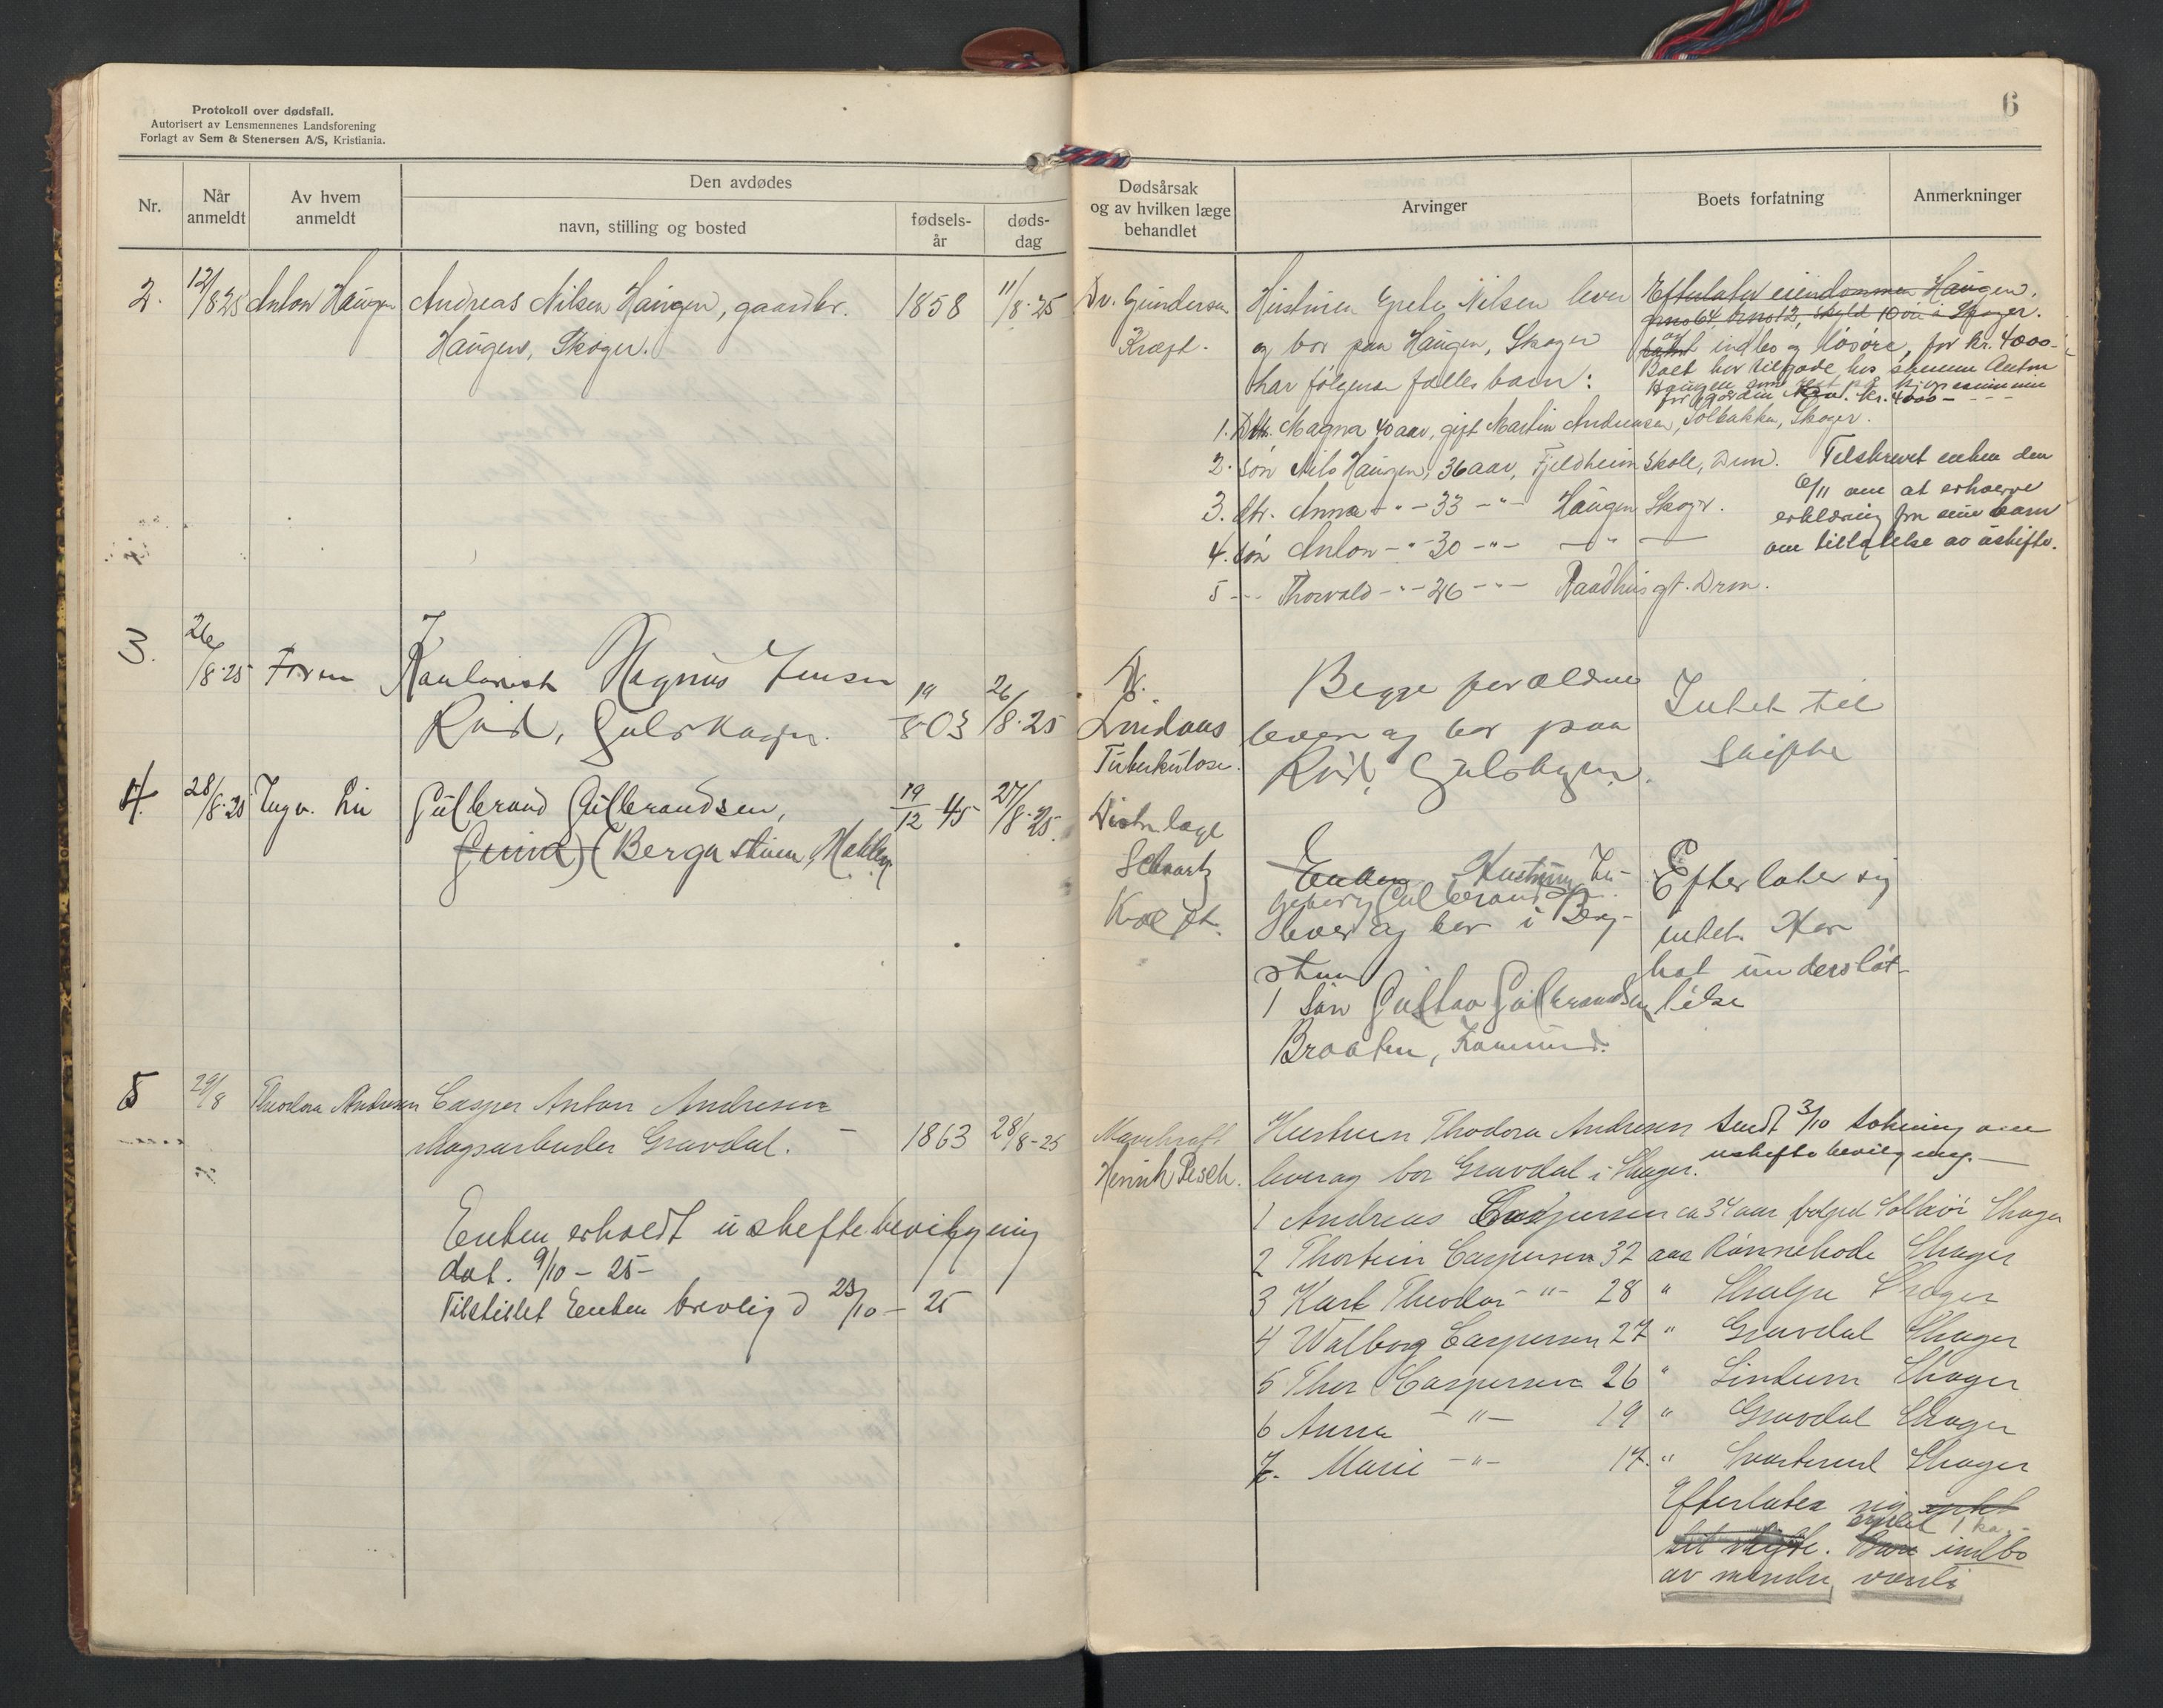 Protokoll over dødsfall.
Autorisert av Lensmennenes Landsforening
Forlagt av Sem & Stenersen A/S, Kristiania.
6
Nr.
Når anmeldt
Av hvem anmeldt
Den avdødes
navn, stilling og bosted
fødsels-år
døds-dag
Dødsårsak og av hvilken læge behandlet
Arvinger
Boets forfatning
Anmerkninger
2. 12/8 25 Anton Haugen Andreas Nilsen Haugen, gaardbr. 1858 11/8-25
Haugen, Skoger.
Dr. Gundersen
Kræft.
Hustruen Grete Nilsen lever
og bor paa Haugen, Skoger
har følgende fælles barn:
Efterlater eiendommen Haugen,
gno 64, bno 12, skyld 10 øre i Skoger.
og indbo og løsøre, for kr. 4000-
Boet har tilgode hos sønnen Anton
Haugen som rest på kjøpesummen
for gården kr. 4000-
1. Dtr. Magna 40 aar, gift Martin Andersen, Solbakken, Skoger.
2. søn Nils Haugen, 36 aar, Fjeldheim Skole, Drm.
3. dtr. Anna -"- 33 -"- Haugen Skoger.
4. søn Anton -"- 30 -"- -"-
5 -"- Thorvald -"- 26 -"- Raadhusgt. Drm.
Tilskrevet enken den
6/11 om at erhverve
erklæring fra sine barn
om tillatelse av uskifte.
3. 26/8-25 Faren Kontorist Magnus Jensen
Kvid, Gulskogen. 19/8-03 26/8-25
Dr.
Lindaas
Tuberkulose.
Begge forældrene
lever og bor paa
Kvid, Gulskogen.
Intet til
skifte
4. 28/8-25 Ingv. Lie Gulbrand Gulbrandsen, 19/12 45 27/8-25.
(Bergastuen,
Distr.læge
Schwartz
Kræft.
Enken Hustruen In-
geborg Gulbrandsen
lever og bor i Berg-
stuen
1 Søn Gustav Gulbrandsen
Braaten,
Efterlater sig
intet. Har
hat understøt-
telse
5 29/8 Theodora Andresen Casper Anton Andresen
skogsarbeider Gravdal. - 1863 28/8-25
Henrik Pesch.
Hustruen Theodora Andresen
lever og bor Gravdal i Skoger.
Sendt 3/10 søkning om
uskiftebevilgning.-
1 Andreas Caspersen ca 34 aar Skoger
2 Thorstein Caspersen 32 aar Rønnehode Skoger
3 Karl Theodor -"- 28 " Skoger
4 Walborg Caspersen 27 " Gravdal Skoger
5 Thor Caspersen 26 " Lindum Skoger
6 Anna -"- 19 " Gravdal Skoger
7. Marie -"- 17. " Skoger
Enken erholdt uskiftebevilgning
dat. 9/10-25-
Tilstillet Enken bevilg d 23/10-25
Efterlater sig
indbo
av mindre værdi